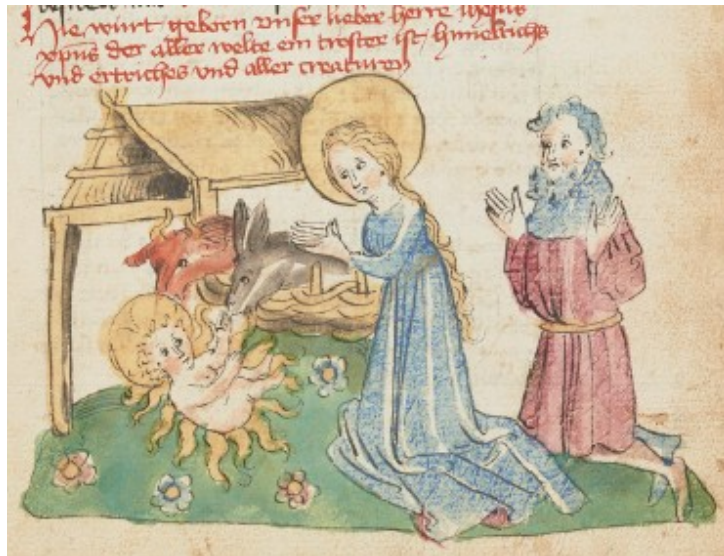 Hie wurt geborn vnser lieber herre ihesus
xpūs der aller welte ein troster ist himelrichs
vnd ertriches vnd aller creaturen